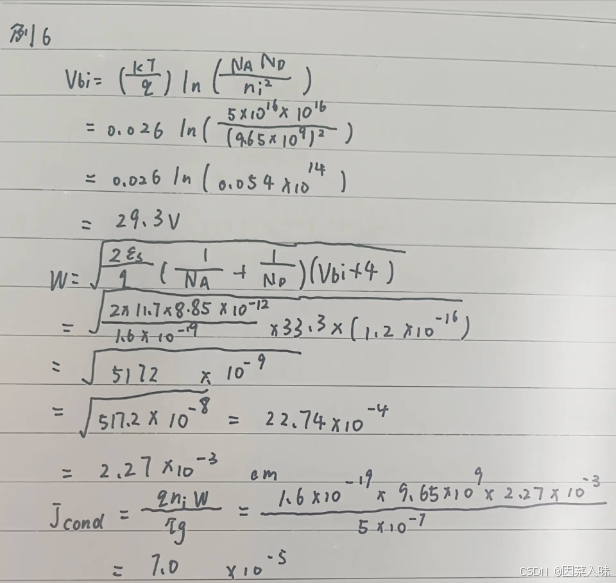 例6
Vbi = (kT/q) ln (NA ND / ni²)
= 0.026 ln( 5×10¹⁶ × 10¹⁶ / (9.65×10⁹)² )
= 0.026 ln ( 0.054 ×10¹⁴ )
= 29.3V
W = √( 2εs/q ( 1/NA + 1/ND ) (Vbi+4) )
= √( 2×11.7×8.85 ×10⁻¹² / 1.6×10⁻¹⁹ ×33.3×(1.2×10⁻¹⁶) )
= √( 5172 × 10⁻⁹ )
= √( 517.2 × 10⁻⁸ ) = 22.74×10⁻⁴
= 2.27×10⁻³ cm
Jcond = q ni W / τg = 1.6×10⁻¹⁹ × 9.65×10⁹ × 2.27×10⁻³ / 5×10⁻⁷
= 7.0 ×10⁻⁵
CSDN @因菜入昧